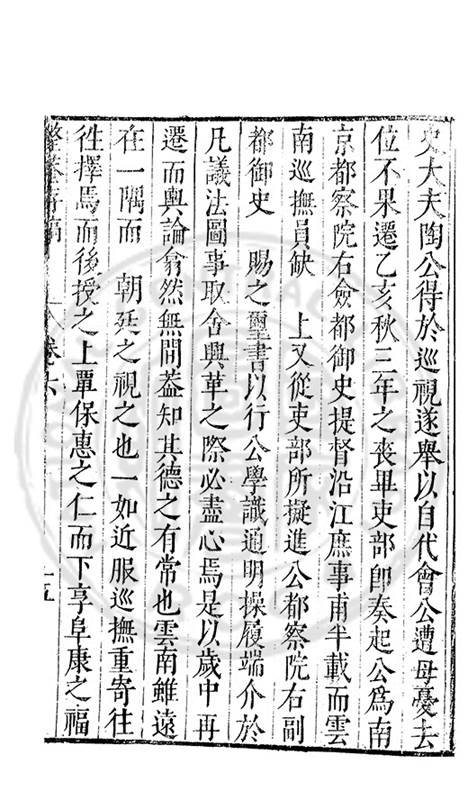 史大夫陶公得於巡視遂舉以自代會公遭母憂去
位不果遷乙亥秋三年之喪畢吏部卽奏起公爲南
京都察院右僉都御史提督沿江庶事甫半載而雲
南巡撫員缺　上又從吏部所擬進公都察院右副
都御史　賜之璽書以行公學識通明操履端介於
凡議法圖事取舍興革之際必盡心焉是以歲中再
遷而輿論翕然無間蓋知其德之有常也雲南雖遠
在一隅而　朝廷之視之也一如近服巡撫重寄往
徃擇焉而後授之上單保惠之仁而下享阜康之福
卷六
十五